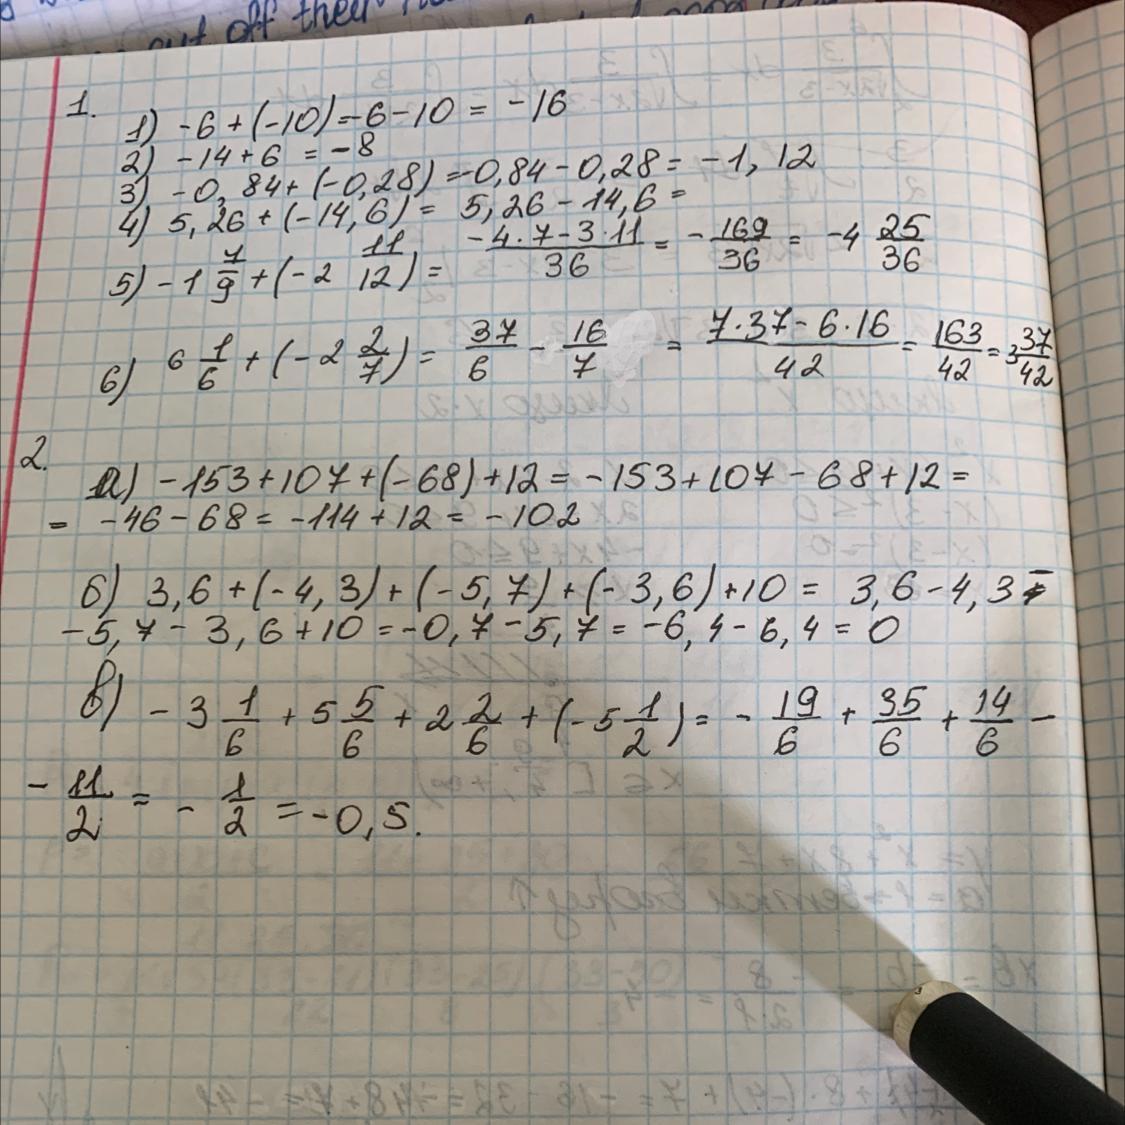 out off their
1.
1) -6+(-10)=-6-10 = -16
2) -14+6 = -8
3) -0,84+(-0,28)=-0,84-0,28= -1,12
4) 5,26+(-14,6)= 5,26-14,6=
5) -1 7/9 +(-2 11/12)= -4·7-3·11/36 = -169/36 = -4 25/36
6) 6 1/6 +(-2 2/7)= 37/6 - 16/7 = 7·37-6·16/42 = 163/42 = 3 37/42
2.
а) -153+107+(-68)+12=-153+107-68+12=
= -46-68=-114+12=-102
б) 3,6+(-4,3)+(-5,7)+(-3,6)+10= 3,6-4,3-
-5,7-3,6+10=-0,7-5,7=-6,4-6,4=0
в) -3 1/6 + 5 5/6 + 2 2/6 + (-5 1/2)= - 19/6 + 35/6 + 14/6 -
- 11/2 = - 1/2 =-0,5.